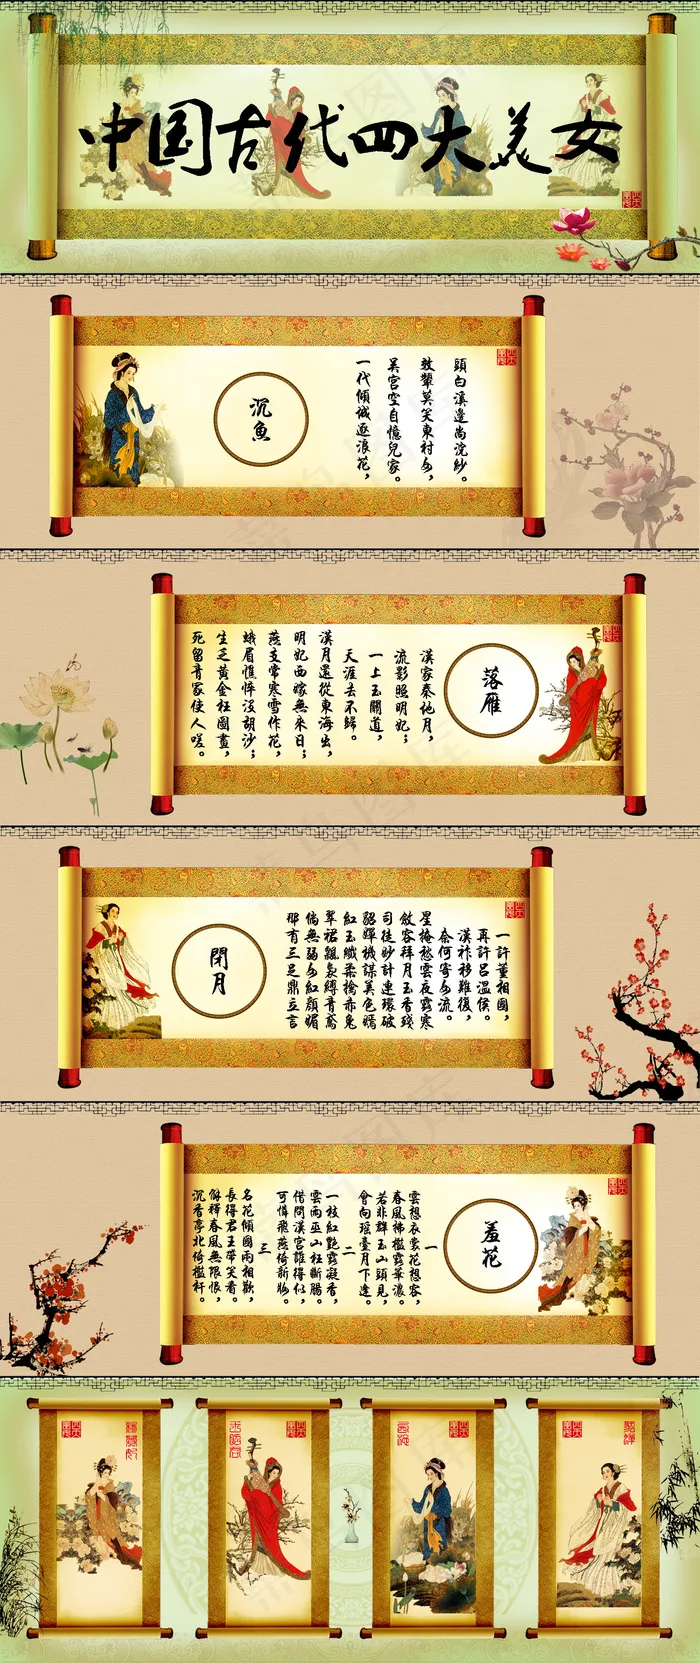 中国古代四大美女
沉魚
一代傾城逐浪花,
吳宮空自憶兒家。
效顰莫笑東村女,
頭白溪邊尚浣紗。
落雁
漢家秦地月,
流影照明妃;
一上玉關道,
天涯去不歸。
漢月還從東海出,
明妃西嫁無來日;
燕支常寒雪作花,
蛾眉憔悴沒胡沙;
生乏黃金枉圖畫,
死留青冢使人嗟。
閉月
一許董相國,
再許呂溫侯。
漢祚移難復,
奈何寄女流。
星掩愁雲夜露寒
斂容拜月玉香殘
司徒妙計連環破
貂嬋機謀美色嫣
紅玉纖柔擒赤兔
翠裙飄裊縛青鸞
倘無弱女紅顏媚
那有三足鼎立言
羞花
一
雲想衣裳花想容,
春風拂檻露華濃。
若非群玉山頭見,
會向瑤臺月下逢。
二
一枝紅艷露凝香,
雲雨巫山枉斷腸。
借問漢宮誰得似,
可憐飛燕倚新妝。
三
名花傾國兩相歡,
長得君王帶笑看。
解釋春風無限恨,
沉香亭北倚檻杆。
楊貴妃
王昭君
西施